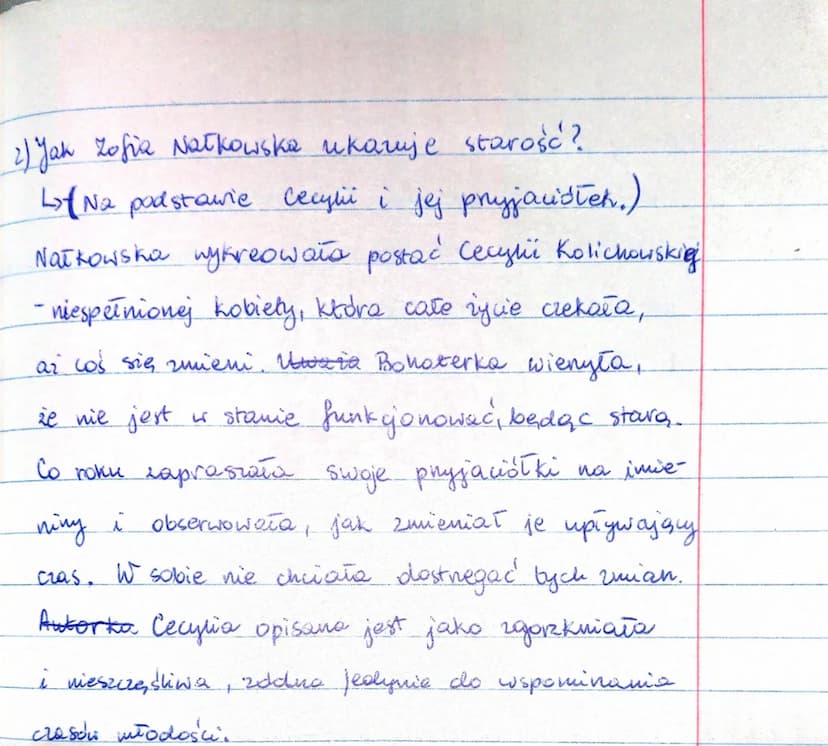 2) Jak Zofia Nałkowska ukazuje starość?
↳(Na podstawie Cecylii i jej przyjaciółek.)
Nałkowska wykreowała postać Cecylii Kolichowskiej
- niespełnionej kobiety, która całe życie czekała,
aż coś się zmieni. ~~Uważa~~ Bohaterka wierzyła,
że nie jest w stanie funkcjonować, będąc starą.
Co roku zapraszała swoje przyjaciółki na imie-
niny i obserwowała, jak zmieniał je upływający
czas. W sobie nie chciała dostrzegać tych zmian.
~~Autorka~~ Cecylia opisana jest jako zgorzkniała
i nieszczęśliwa, zdolna jedynie do wspominania
czasów młodości.